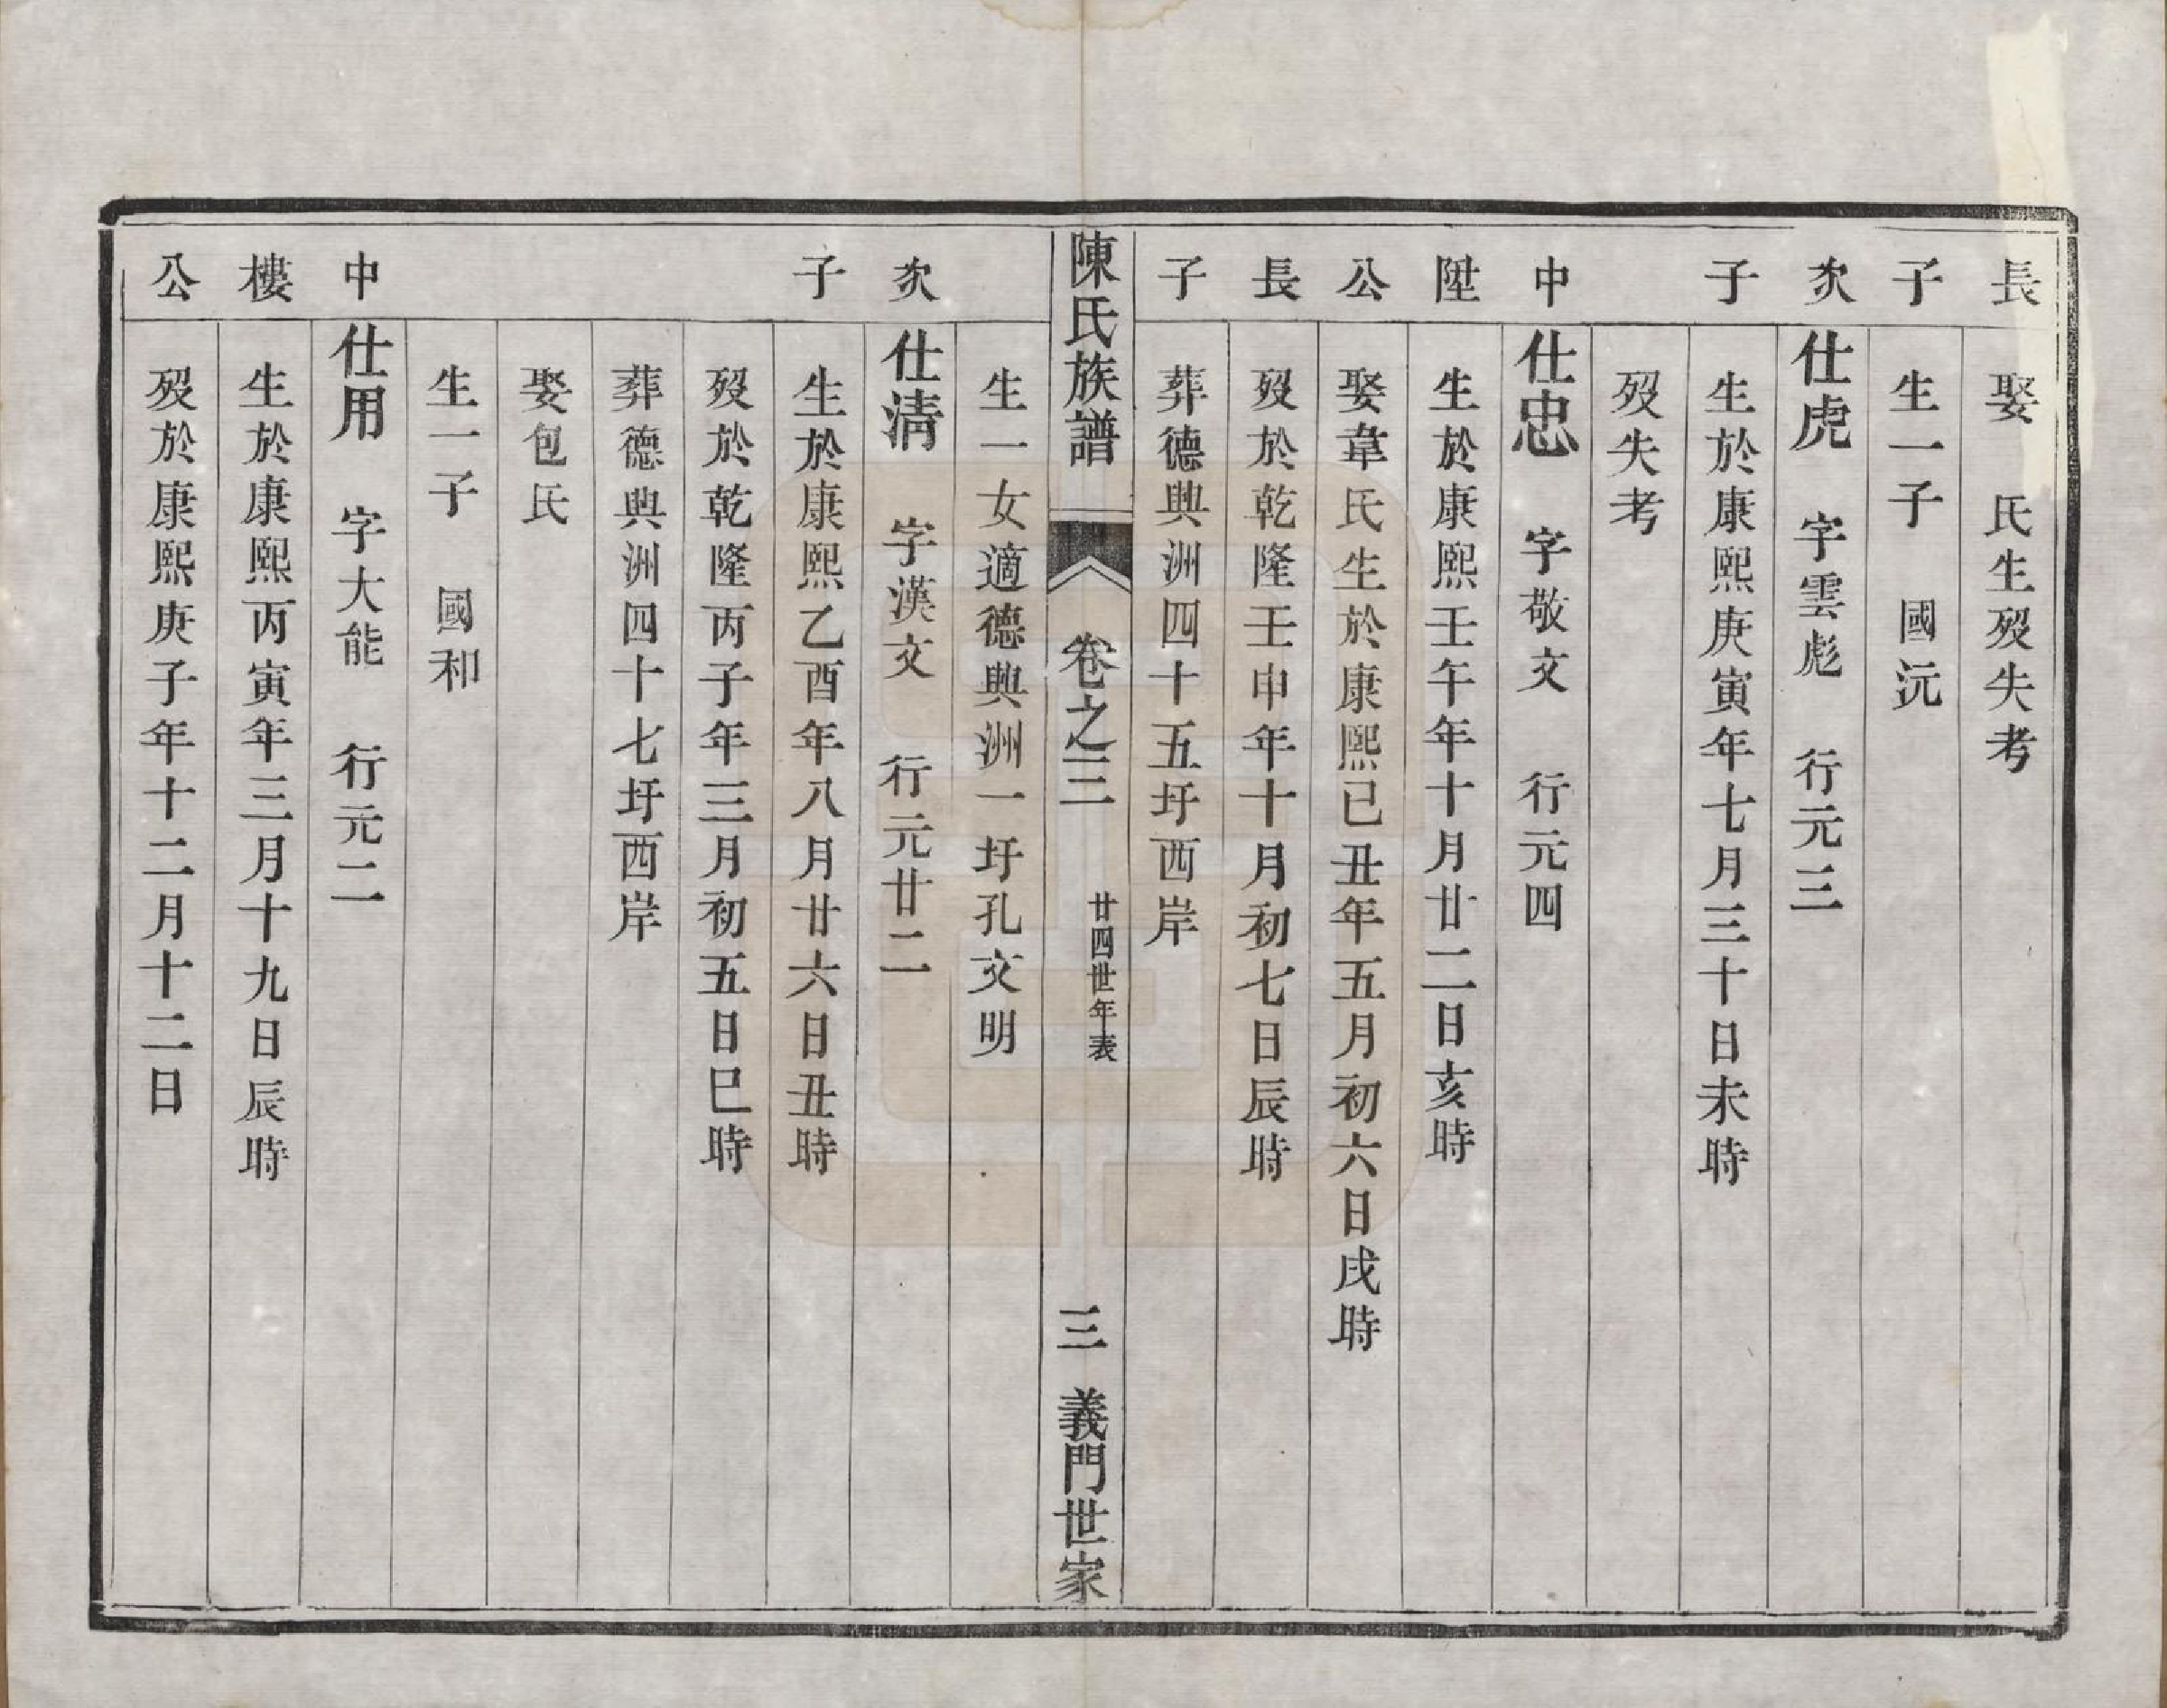 長 娶 氏生歿失考
子 生一子 國沅
次 仕虎 字雲彪 行元三
子 生於康熙庚寅年七月三十日未時
歿失考
中 仕忠 字敬文 行元四
陞 生於康熙壬午年十月廿二日亥時
公 娶韋氏生於康熙己丑年五月初六日戌時
長 歿於乾隆壬申年十月初七日辰時
子 葬德興洲四十五圩西岸
陳氏族譜 卷之三 廿四世年表 三 義門世家
生一女適德興洲一圩孔文明
次 仕清 字漢文 行元廿二
子 生於康熙乙酉年八月廿六日丑時
歿於乾隆丙子年三月初五日巳時
葬德興洲四十七圩西岸
娶包氏
生一子 國和
中 仕用 字大能 行元二
樓 生於康熙丙寅年三月十九日辰時
公 歿於康熙庚子年十二月十二日